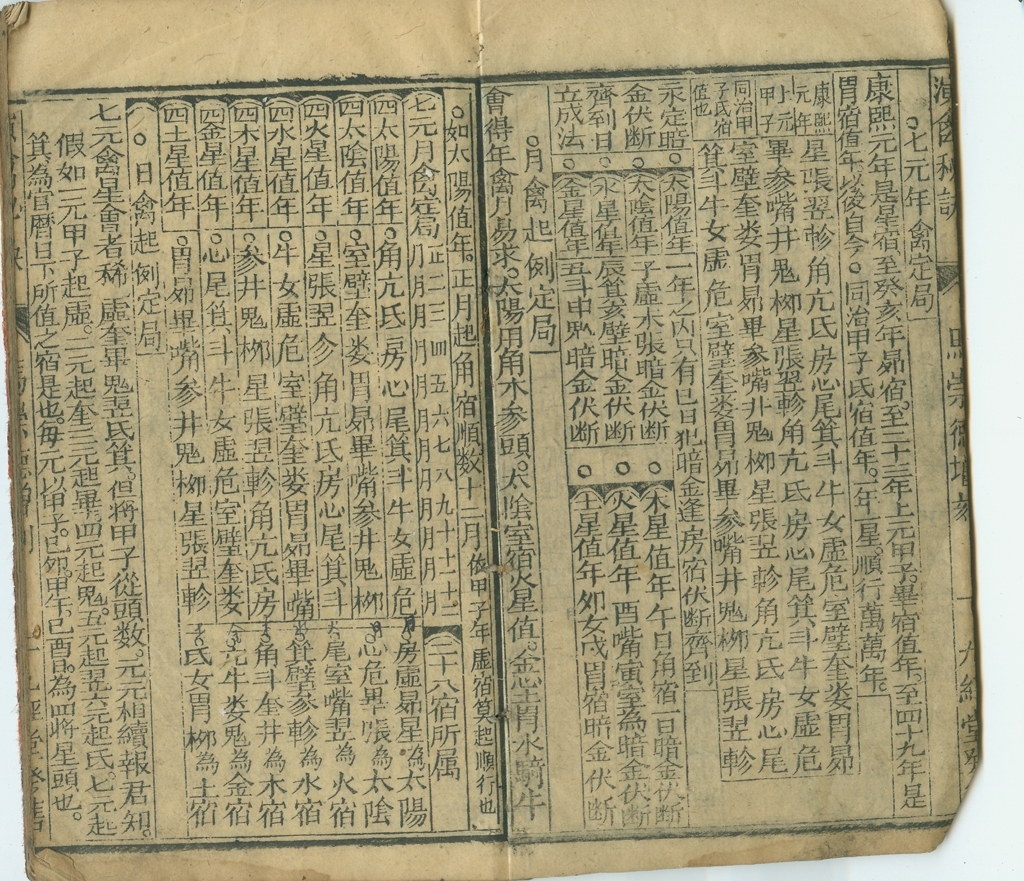 演禽秘訣
○七元年禽定局
康熙元年是星宿至癸亥年昴宿。至二十三年上元甲子。畢宿值年。至四十九年是
胃宿值年以後自今。同治甲子氐宿值年。一年一星。順行萬萬年。
康熙元年 星張翌軫角亢氐房心尾箕斗牛女虛危室壁奎娄胃昴
上元甲子 畢參嘴井鬼柳星張翌軫角亢氐房心尾箕斗牛女虛危
同治甲子氐宿值也 室壁奎娄胃昴畢參嘴井鬼柳星張翌軫角亢氐房心尾
箕斗牛女虛危室壁奎娄胃昴畢參嘴井鬼柳星張翌軫
永定暗金伏断齊到日立成法
○太陽值年一年之内只有巳日犯暗金逢房宿伏断齊到
○太陰值年子虛未張暗金伏断
○水星值年辰箕亥壁暗金伏断
○金星值年丑斗申鬼暗金伏断
○木星值年午日角宿一日暗金伏断
○火星值年酉嘴寅室為暗金伏断
○土星值年卯女戌胃宿暗金伏断
○月禽起例定局
會得年禽月易求。太陽用角木參頭。太陰室宿火星值。金心土胃水騎牛
○如太陽值年。正月起角宿順数十二月 依甲子年虛宿算起順行也
七元月禽定局 正月二月三月四月五月六月七月八月九月十月十一月十二月
四太陽值年○角亢氐房心尾箕斗牛女虛危
四太陰值年○室壁奎娄胃昴畢嘴參井鬼柳
四火星值年○星張翌軫角亢氐房心尾箕斗
四水星值年○牛女虛危室壁奎娄胃昴畢嘴
四木星值年○參井鬼柳星張翌軫角亢氐房
四金星值年○心尾箕斗牛女虛危室壁奎娄
四土星值年○胃昴畢嘴參井鬼柳星張翌軫
二十八宿所属
房虛昴星為太陽
心危畢張為太陰
尾室嘴翌為火宿
箕壁參軫為水宿
角斗奎井為木宿
亢牛娄鬼為金宿
氐女胃柳為土宿
○日禽起例定局
七元禽星會者稀。虛奎畢鬼翌氐箕。但將甲子從頭数。元元相續報君知。
假如一元甲子起虛。二元起奎。三元起畢。四元起鬼。五元起翌。六元起氐。七元起
箕。為官曆日下所值之宿是也。每一元以甲子。己卯。甲午。己酉日。為四將星頭也。